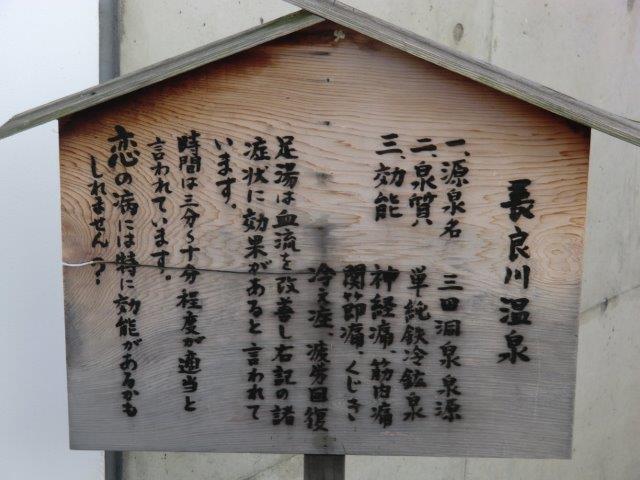 長良川温泉
一、源泉名　三田洞泉源
二、泉質　単純鉄冷鉱泉
三、効能　神経痛、筋肉痛
関節痛、くじき
冷え症、疲労回復
足湯は血流を改善し右記の諸
症状に効果があると言われて
います。
時間は三分〜十分程度が適当と
言われています。
恋の病には特に効能があるかも
しれません？